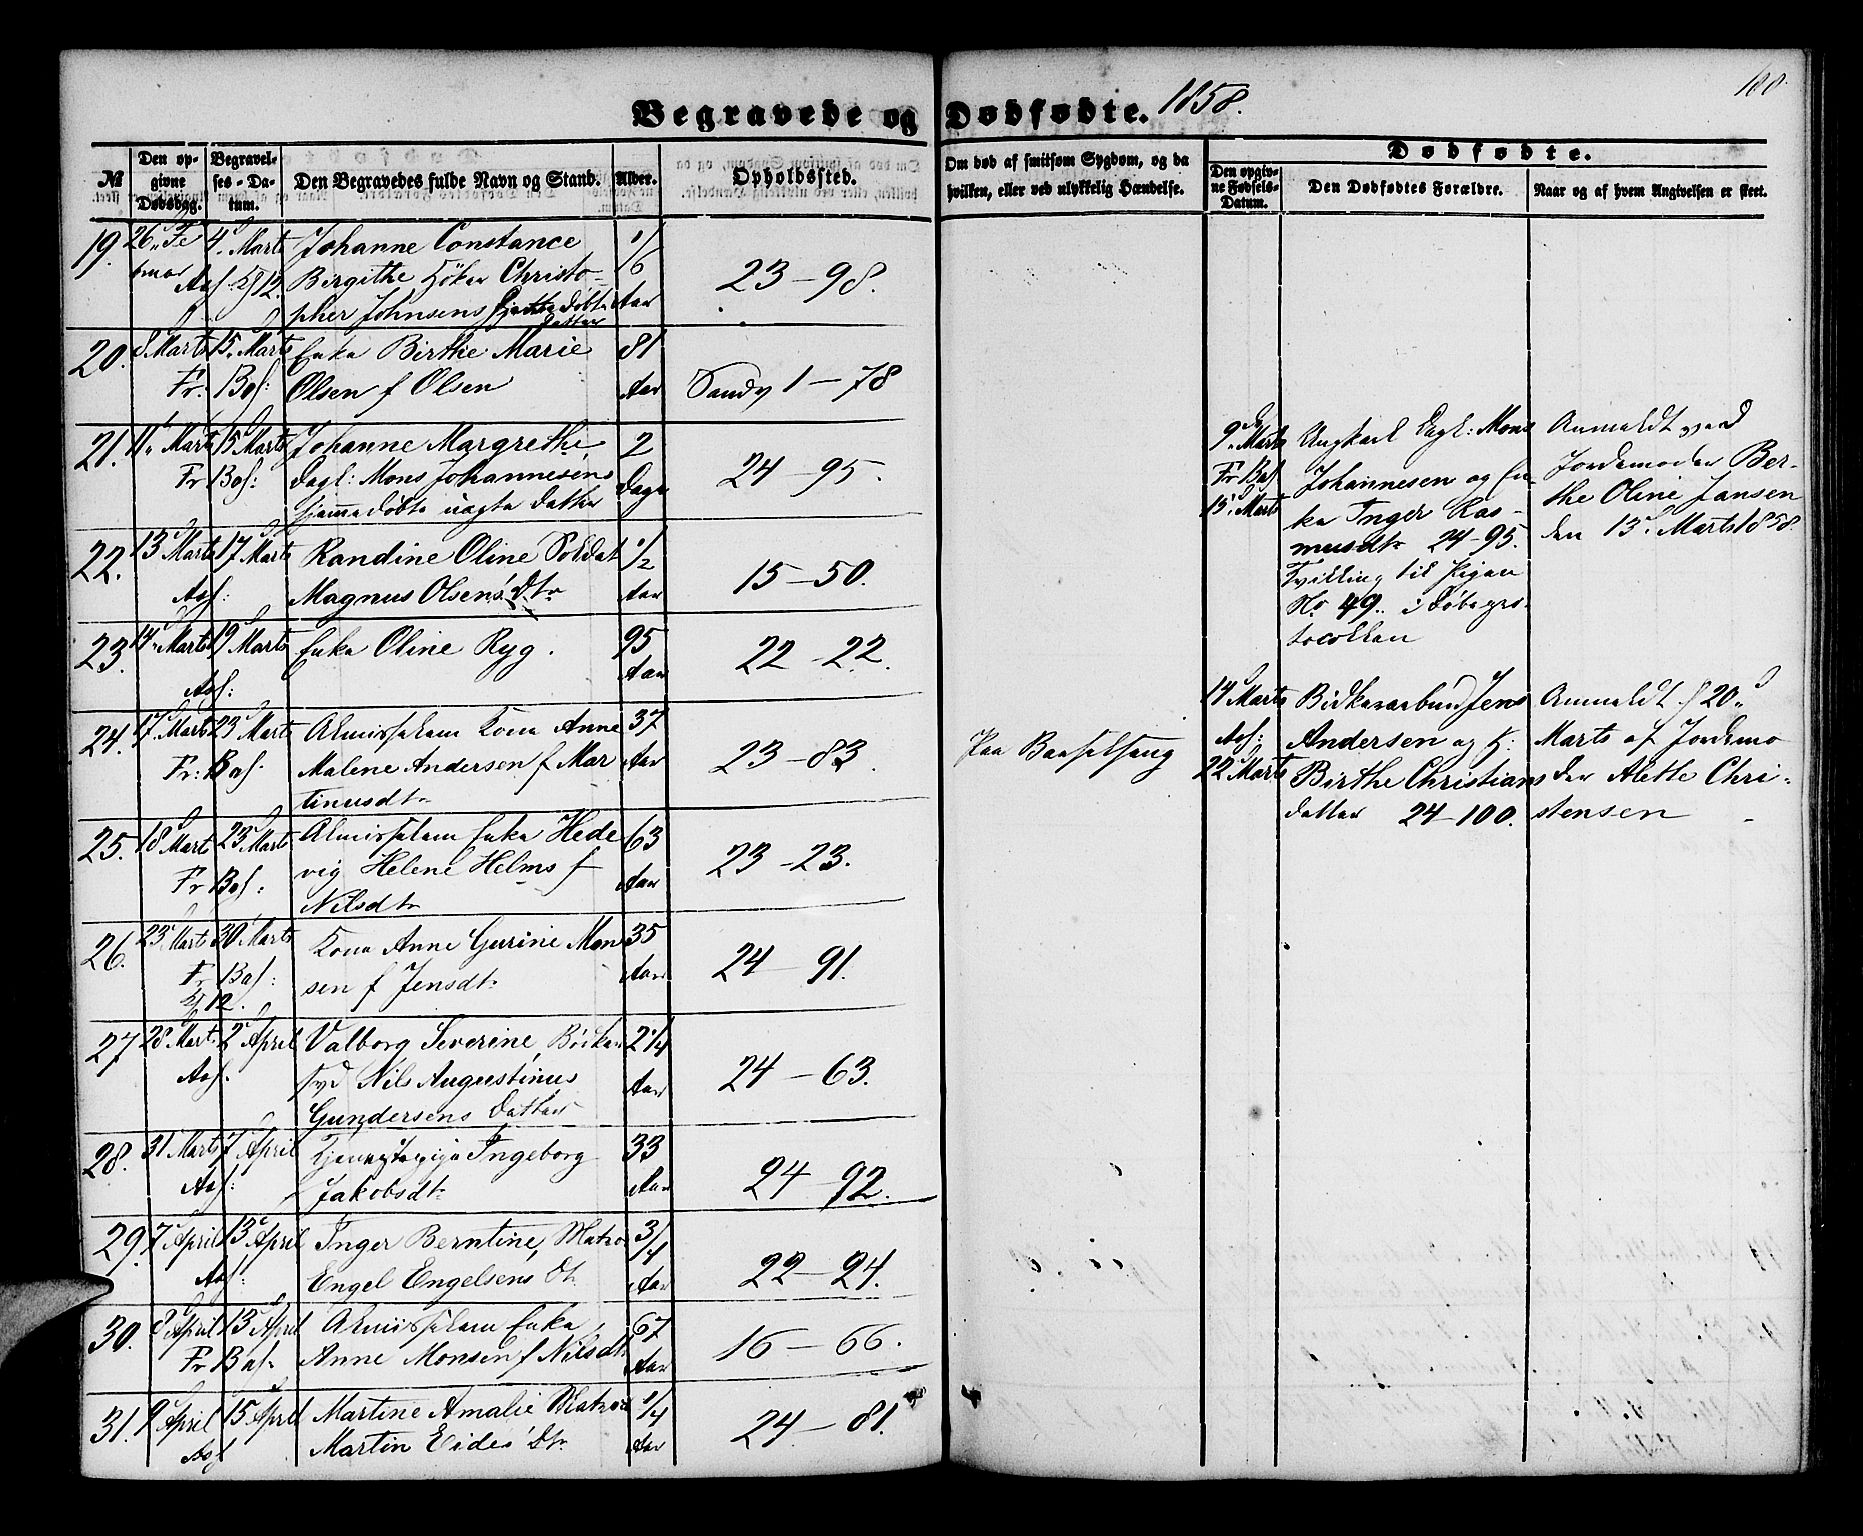 Begravede og Dødfødte. 1858.
188.
№
Den opgivne Dødsdag.
Begravelses-Datum.
Den Begravedes fulde Navn og Stand.
Alder.
Opholdssted.
Om død af smitsom Sygdom, og da hvilken, eller ved ulykkelig Hændelse.
Dødfødte.
Den opgivne Fødsels-Datum.
Den Dødfødtes Forældre.
Naar og af hvem Angivelsen er skeet.
19. 26. Fe 4. Marts Johanne Constance 1/6
bruar Birgithe Høker Christo- 23-98.
pher Johnsens hjemmedøbte Aar
Datter
20. 8 Marts 15. Marts Enke Birthe Marie 81
Fr. Bos: Olsen f Olsen Aar Sandv 1-78
21. 11. Marts 15 Marts Johanne Margrethe 2
Fr Bos: Dagl: Mons Johannesens Dage 24-95.
hjemmedøbte uægte Datter
22. 13 Marts 17 Marts Randine Oline Soldat 1/2
Magnus Olsens Dtr Aar 15-50.
23. 14. Marts 19 Marts Enke Oline Ryg. 95
Aar 22-22.
24. 17. Marts 23 Marts Almisselem Kone Anne 37
Fr: Bos. Malene Andersen f Mar Aar 23-83.
tinusdtr
Paa Barselseng
25. 18 Marts 23 Marts Almisselem Enke Hede 63
Fr Bos: vig Helene Helms f Aar 23-23.
Nilsdtr
26. 23 Marts 30 Marts Kone Anne Gurine Mon 35
Fr Bos: sen f Jensdtr Aar 24-91.
27 28 Marts 2 April Valborg Severine, Bødker 2 1/4
svd Nils Augustinus Aar 24-63.
Gundersens Datter
28. 31 Marts 7 April Tjenestepige Ingeborg 33
Jakobsdtr Aar 24-92.
29. 7 April 13 April Inger Berntine, Matros 3/4
Engel Engelsens Dtr Aar 22-24.
30. 8 April 13 April Almisselem Enke 67
Fr Bos: Anne Monsen f Nilsdtr Aar 16-66.
31. 9 April 15 April Martine Amalie Matros 1/4
Martin Eides Dtr Aar 24-81.
9. Marts Ungkarl Dagl: Mons Anmeldt ved
Fr Bos Johannesen og En Jordemoder Ber-
15. Marts ke Inger Ras- the Oline Jansen
musdtr 24-95. den 13. Marts 1858
Tvilling til Pigen
No 49. i Døbepro
tocollen
14 Marts Bødkersvend Jens Anmeldt d 20.
Andersen og K: Marts af Jordemo
22 Marts Birthe Christians der Alette Chri-
datter 24-100. stensen